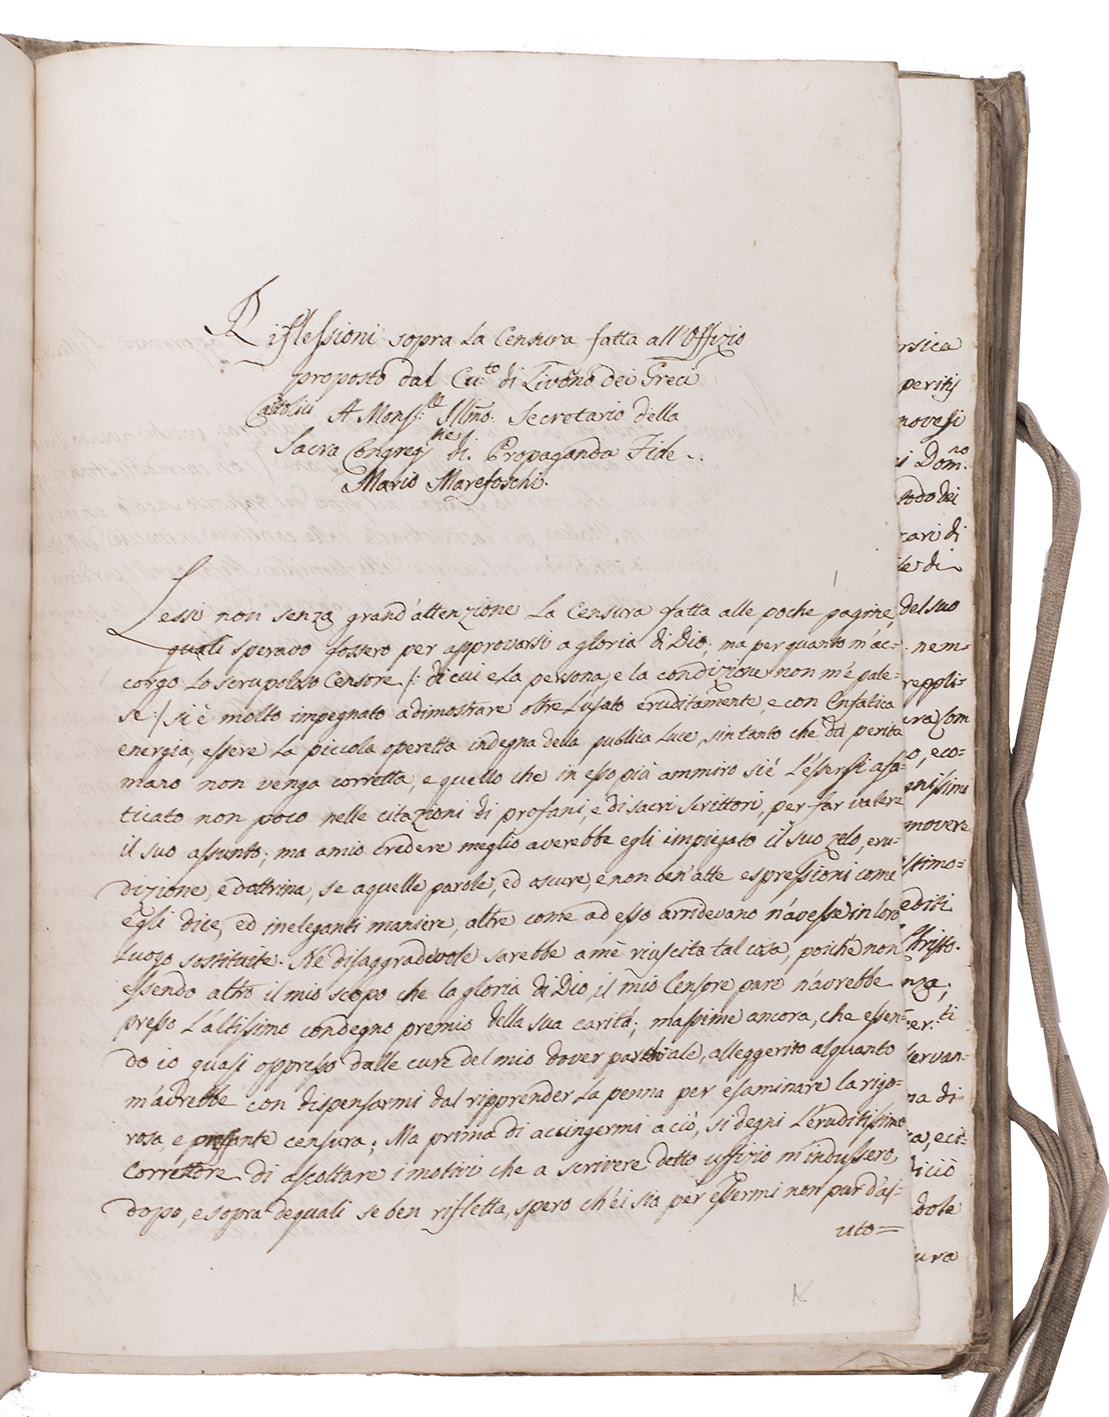 Riflessioni sopra La Censura fatta all'Offizio
proposto dal Cu.to di Livorno dei Greci
Cattolici A Mons.r Illmo. Secretario della
Sacra Congreg.ne di Propaganda Fide..
Mario Marefoschi.
Lessi non senza grand'attenzione La Censura fatta alle poche pagine,
quali speravo fossero per approvarsi a gloria di Dio; ma per quanto m'ac-
corgo Lo scrupoloso Censore /: di cui e La persona, e la condizione non m'è pale-
se :/ si è molto impegnato a dimostrare oltre L'usato eruditamente, e con Enfatica
energia, essere La piccola operetta indegna della publica Luce, sin tanto che da perita
mano non venga corretta, e quello che in esso più ammiro si è L'essersi afa-
ticato non poco nelle citazioni di profani, e di sacri scrittori, per far valere
il suo assunto; ma a mio credere meglio averebbe egli impiegato il suo zelo, eru-
dizione, e dottrina, se a quelle parole, ed oscure, e non ben'atte espressioni come
egli dice, ed ineleganti maniere, altre come ad esso arridevano n'avesse in loro
Luogo sostituite. Nè disaggradevole sarebbe a me riuscita tal cosa, poichè non
essendo altro il mio scopo che la gloria di Dio, il mio Censore pare n'avrebbe
presso L'altissimo condegno premio della sua carità; massime ancora, che essen-
do io quasi oppresso dalle cure del mio dover parochiale, alleggerito alquanto
m'avrebbe con dispensarmi dal ripprender La penna per esaminare la rigo-
rosa, e pressante censura; Ma prima di accingermi a ciò, si degni L'eruditissimo
Correttore di ascoltare i motivi che a scrivere detto uffizio m'indussero,
dopo, e sopra de quali se ben rifletta, spero ch'ei sia per essermi non pur d'aj-
uto=
rsica
periti
novesi
i Dom.no
todo dei
cari di
le di
del suo
nem-
reppli-
ra) som
o, eco-
gnissimi
movere
stimo=
editi
Christo.
nza;
er.ti
servan-
na di
ca, eci-
iciò
dole
ura